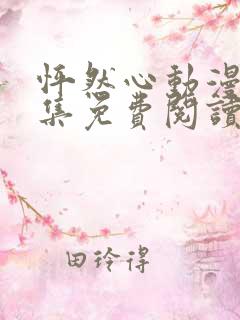 怦然心動漫
集免費閱讀
田玲得